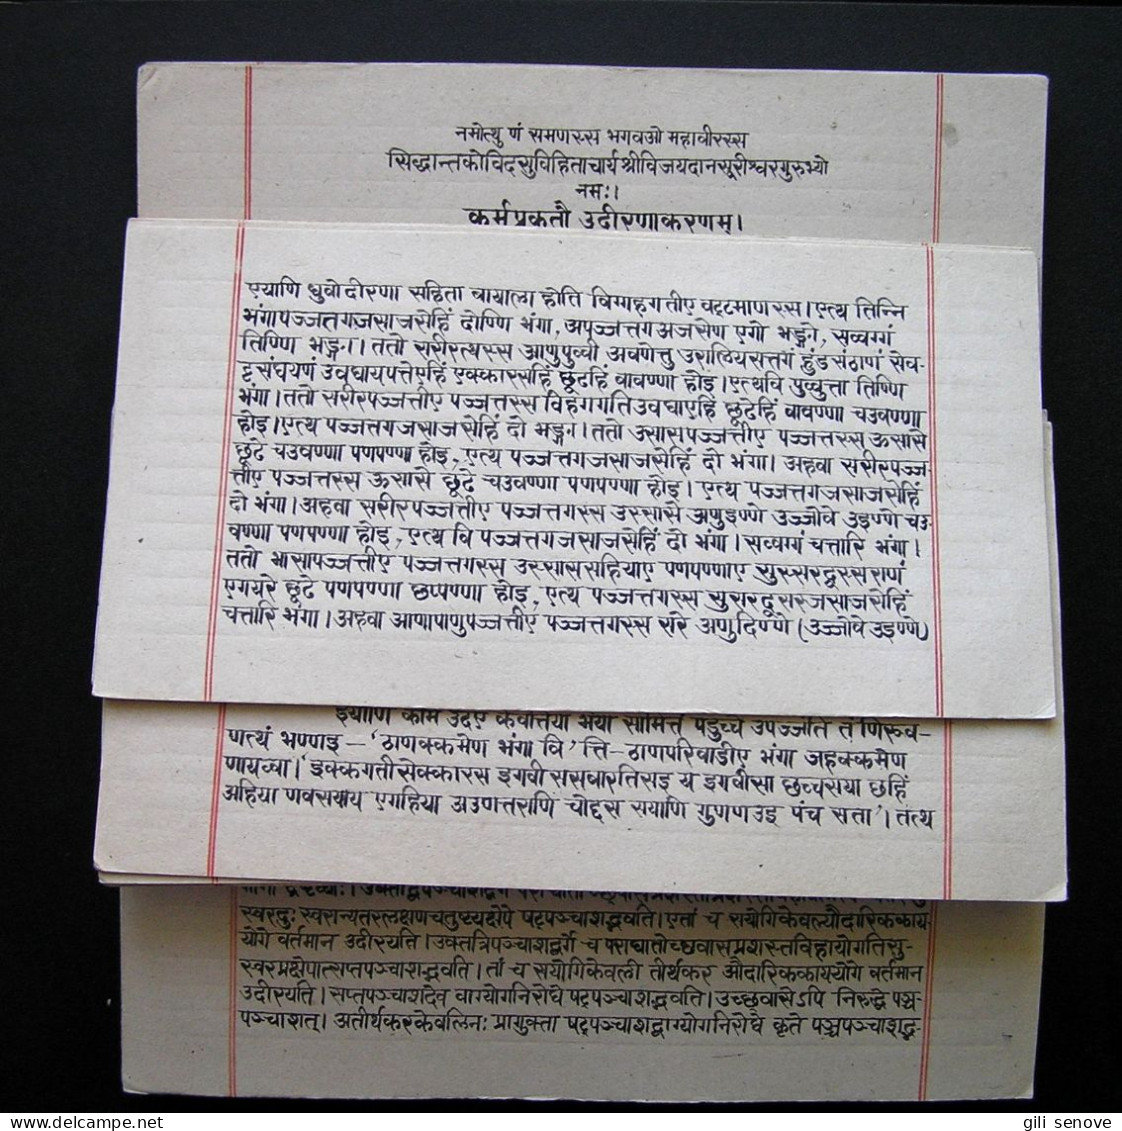 नमोत्थु णं समणस्स भगवओ महावीरस्स
सिद्धान्तकोविदसुविहिताचार्यश्रीविजयदानसूरीश्वरगुरुभ्यो
नमः।
कर्मप्रकृतौ उदीरणाकरणम्।
एयाणि धुवोदीरणा सहिता बायाला होंति विग्गहगतीए वट्टमाणस्स। एत्थ तिन्नि
भंगापज्जत्तगजसाजसेहिं दोण्णि भंगा, अपज्जत्तगअजसेण एगो भङ्गो, सव्वग्गं
तिण्णि भङ्गा। ततो सरीरत्थस्स आणुपुव्वी अवणेत्तु उरालियसत्तगं हुंडसंठाणं सेव-
ट्टसंघयणं उवघायपत्तेएहिं एक्कारसहिं छूढेहिं बावण्णा होइ। एत्थवि पुव्वुत्ता तिण्णि
भंगा। ततो सरीरपज्जत्तीए पज्जत्तस्स विहगगतिउवघाएहिं छूढेहिं बावण्णा चउवण्णा
होइ। एत्थ पज्जत्तगजसाजसेहिं दो भङ्गा। ततो उसासपज्जत्तीए पज्जत्तस्स ऊसासे
छूढे चउवण्णा पणपण्णा होइ, एत्थ पज्जत्तगजसाजसेहिं दो भंगा। अहवा सरीरपज्ज-
त्तीए पज्जत्तस्स ऊसासे छूढे चउवण्णा पणपण्णा होइ। एत्थ पज्जत्तगजसाजसेहिं
दो भंगा। अहवा सरीरपज्जत्तीए पज्जत्तगस्स उस्सासे अणुइण्णे उज्जोवे उइण्णे चउ-
वण्णा पणपण्णा होइ, एत्थ वि पज्जत्तगजसाजसेहिं दो भंगा। सव्वग्गं चत्तारि भंगा।
ततो भासापज्जत्तीए पज्जत्तगस्स उस्साससहियाए पणपण्णाए सुस्सरदूस्सराणं
एगयरे छूढे पणपण्णा छप्पण्णा होइ, एत्थ पज्जत्तगस्स सुसरदूसरजसाजसेहिं
चत्तारि भंगा। अहवा आणापाणुपज्जत्तीए पज्जत्तगस्स सरे अणुदिण्णे (उज्जोवे उइण्णे)
उदए केवतिया भंगा सामित्तं पडुच्च उपज्जंति तं णिरूव-
णत्थं भण्णइ – 'ठाणक्कमेण भंगा वि' त्ति – ठाणपरिवाडीए भंगा जहक्कमेण
णायव्वा। 'इक्कगतीसेक्कारस इगवीससबारतिसइ य इगवीसा छच्चसया छहिं
अहिया णवसया य एगहिया अउणत्तराणि चोद्दस सयाणि गुणणउइ पंच सता'। तत्थ
स्वरदुःस्वरान्यतरलक्षणचतुष्टयक्षेपे षट्पञ्चाशद्भवति। एतां च सयोगिकेवल्यौदारिककाय-
योगे वर्तमान उदीरयति। उक्तत्रिपञ्चाशद्वर्गे च पराघातोच्छ्वासप्रशस्तविहायोगतिसु-
स्वरप्रक्षेपात्सप्तपञ्चाशद्भवति। तां च सयोगिकेवली तीर्थकर औदारिककाययोगे वर्तमान
उदीरयति। सप्तपञ्चाशदेव वाग्योगनिरोधे षट्पञ्चाशद्भवति। उच्छ्वासेऽपि निरुद्धे पञ्च-
पञ्चाशत्। अतीर्थकरकेवलिनः प्रागुक्ता षट्पञ्चाशद्वाग्योगनिरोधे कृते पञ्चपञ्चाशद्भ-
gili senove